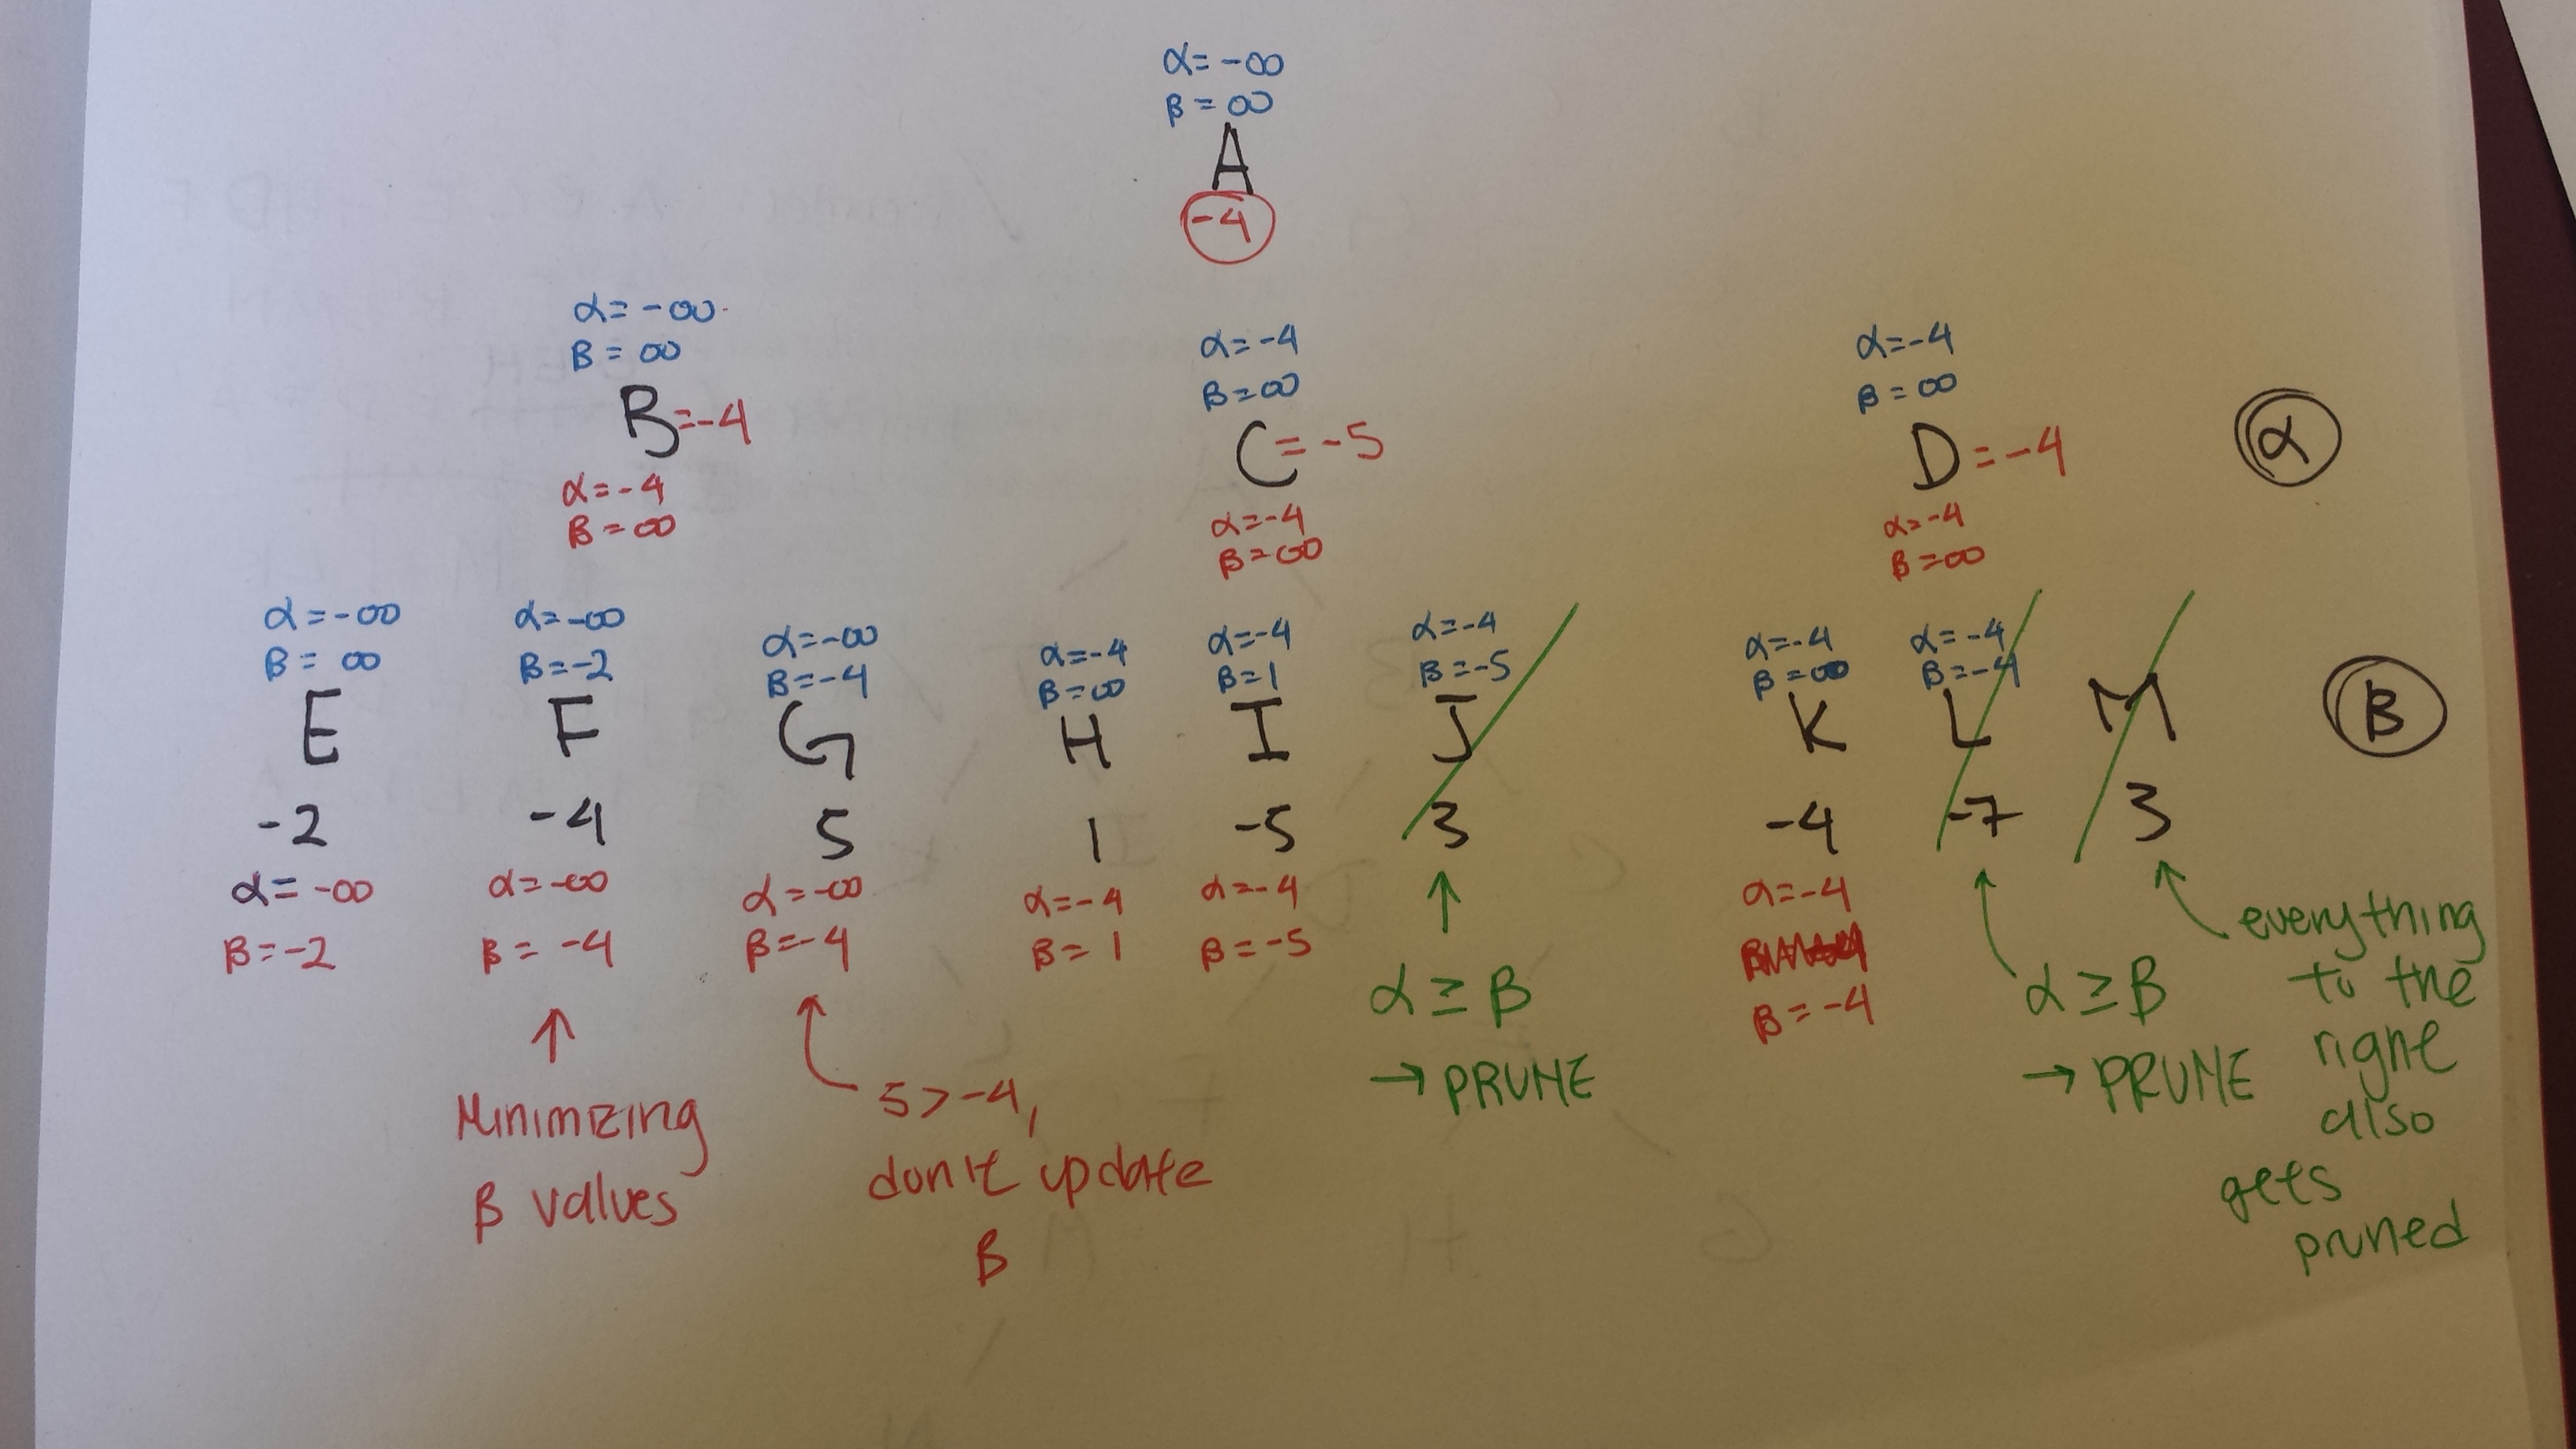 α = -∞
β = ∞
A
-4
α = -∞
β = ∞
B = -4
α = -4
β = ∞
α = -4
β = ∞
C = -5
α = -4
β = ∞
α = -4
β = ∞
D = -4
α = -4
β = ∞
α
α = -∞
β = ∞
E
-2
α = -∞
β = -2
α = -∞
β = -2
F
-4
α = -∞
β = -4
↑
Minimizing
β values
α = -∞
β = -4
G
5
α = -∞
β = -4
5 > -4,
don't update
β
α = -4
β = ∞
H
1
α = -4
β = 1
α = -4
β = 1
I
-5
α = -4
β = -5
α = -4
β = -5
J
3
↑
α ≥ β
→ PRUNE
α = -4
β = ∞
K
-4
α = -4
β = -4
α = -4
β = -4
L
-7
α ≥ β
→ PRUNE
M
3
everything
to the
right
also
gets
pruned
β